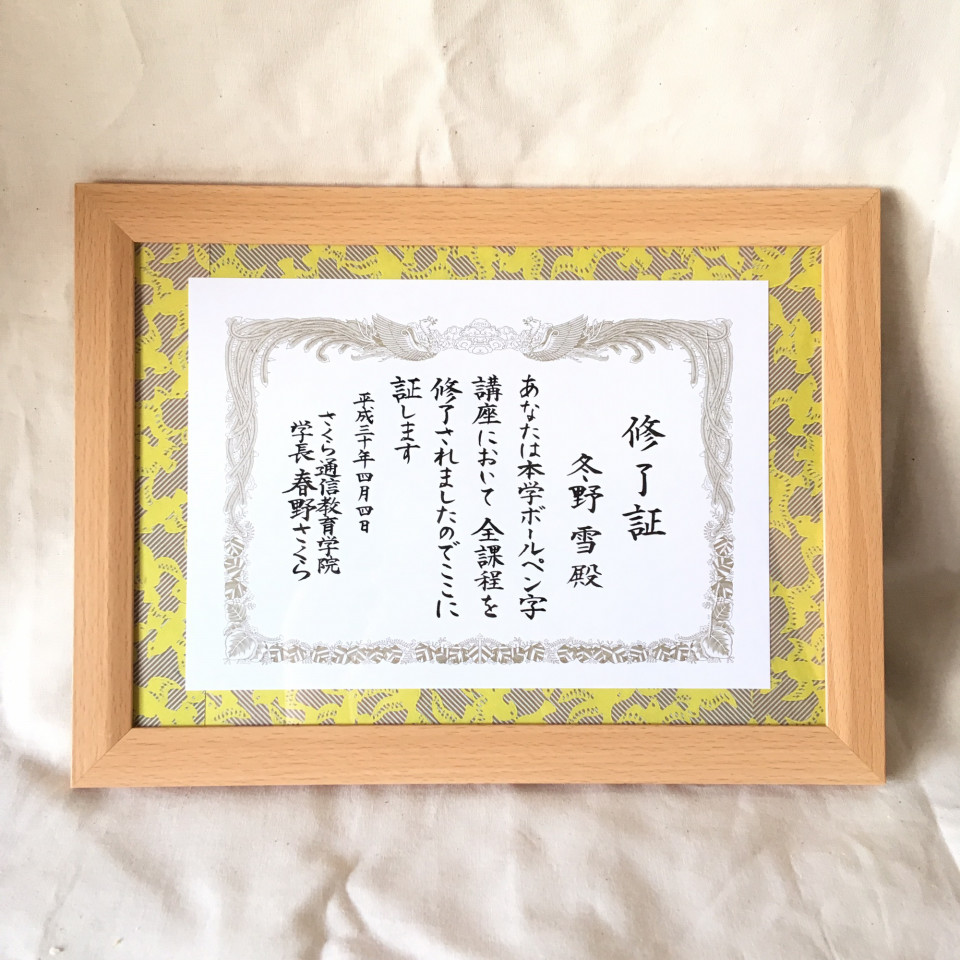 修了証
冬野 雪 殿
あなたは本学ボールペン字
講座において 全課程を
修了されましたのでここに
証します
平成三十年四月四日
さくら通信教育学院
学長 春野さくら